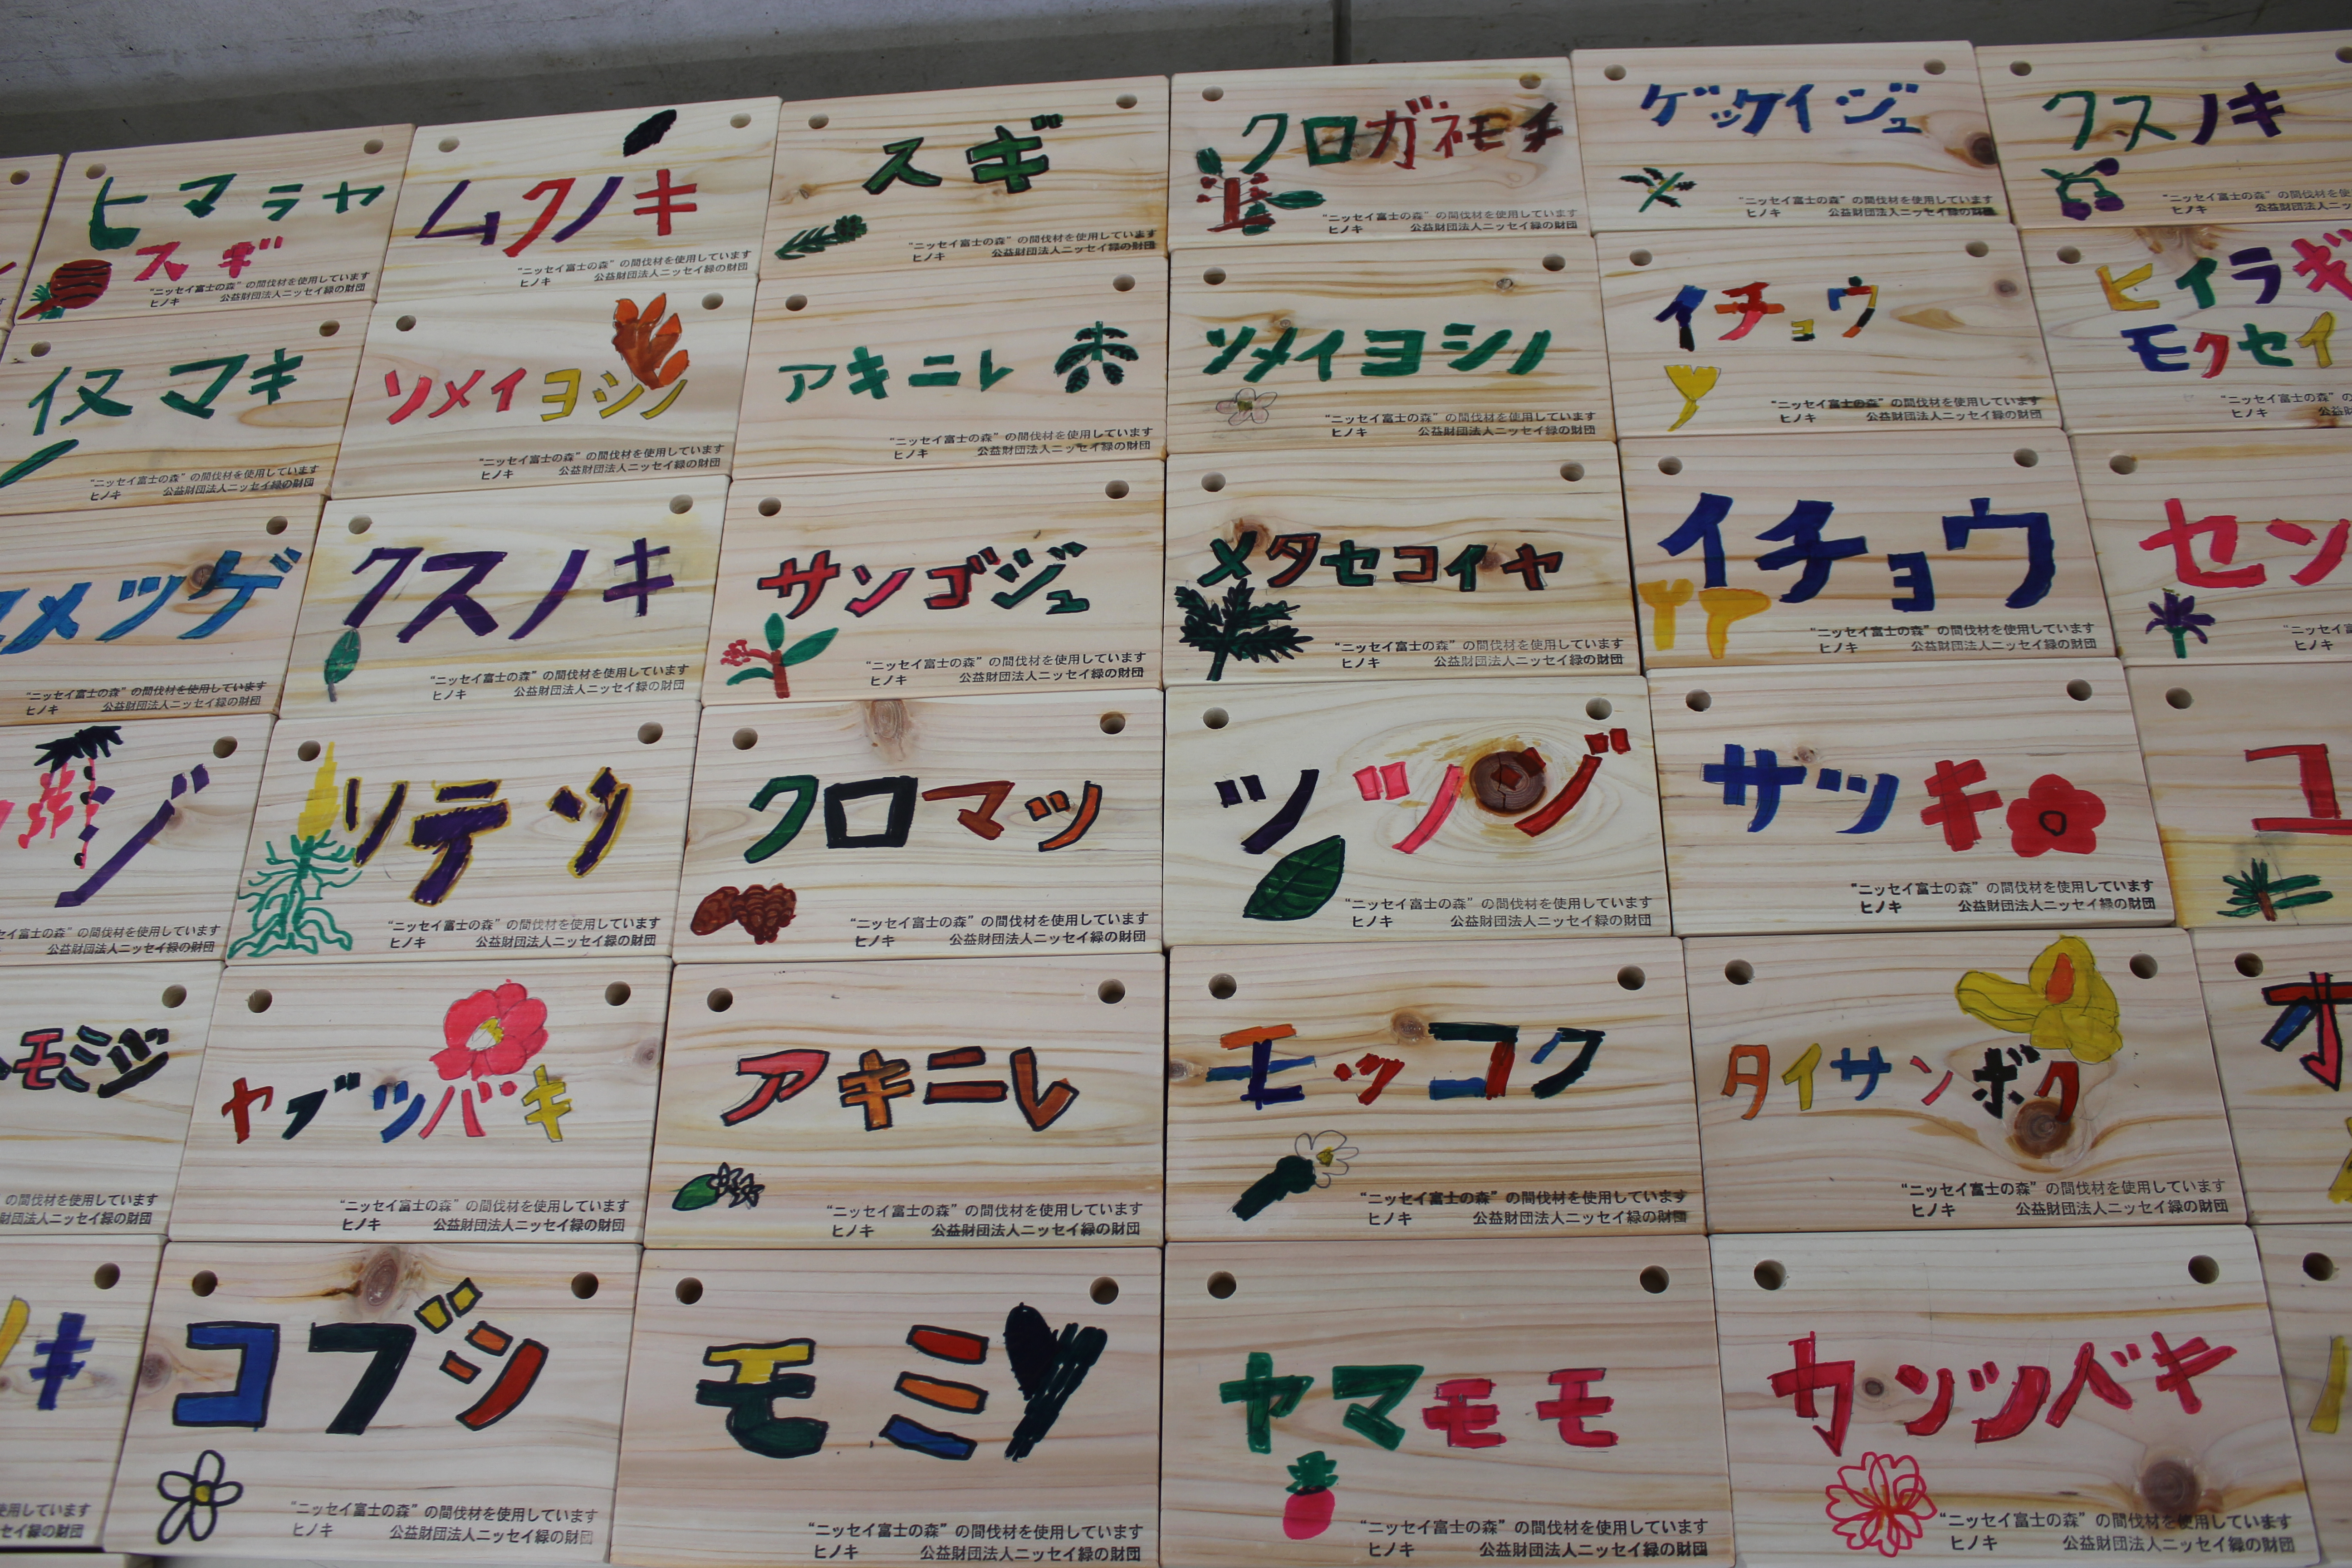 ヒマラヤ
スギ
"ニッセイ富士の森"の間伐材を使用しています
ヒノキ 公益財団法人ニッセイ緑の財団
ムクノキ
"ニッセイ富士の森"の間伐材を使用しています
ヒノキ 公益財団法人ニッセイ緑の財団
スギ
"ニッセイ富士の森"の間伐材を使用しています
ヒノキ 公益財団法人ニッセイ緑の財団
クロガネモチ
"ニッセイ富士の森"の間伐材を使用しています
ヒノキ 公益財団法人ニッセイ緑の財団
ゲッケイジュ
"ニッセイ富士の森"の間伐材を使用しています
ヒノキ 公益財団法人ニッセイ緑の財団
クスノキ
"ニッセイ富士の森"の間伐材を使
ヒノキ 公益財団法人ニッセイ緑
イヌマキ
"ニッセイ富士の森"の間伐材を使用しています
ヒノキ 公益財団法人ニッセイ緑の財団
ソメイヨシノ
"ニッセイ富士の森"の間伐材を使用しています
ヒノキ 公益財団法人ニッセイ緑の財団
アキニレ
"ニッセイ富士の森"の間伐材を使用しています
ヒノキ 公益財団法人ニッセイ緑の財団
ソメイヨシノ
"ニッセイ富士の森"の間伐材を使用しています
ヒノキ 公益財団法人ニッセイ緑の財団
イチョウ
"ニッセイ富士の森"の間伐材を使用しています
ヒノキ 公益財団法人ニッセイ緑の財団
ヒイラギ
モクセイ
"ニッセイ富士の森"の
ヒノキ 公益
メツゲ
"ニッセイ富士の森"の間伐材を使用しています
ヒノキ 公益財団法人ニッセイ緑の財団
クスノキ
"ニッセイ富士の森"の間伐材を使用しています
ヒノキ 公益財団法人ニッセイ緑の財団
サンゴジュ
"ニッセイ富士の森"の間伐材を使用しています
ヒノキ 公益財団法人ニッセイ緑の財団
メタセコイヤ
"ニッセイ富士の森"の間伐材を使用しています
ヒノキ 公益財団法人ニッセイ緑の財団
イチョウ
"ニッセイ富士の森"の間伐材を使用しています
ヒノキ 公益財団法人ニッセイ緑の財団
セン
"ニッセイ
ヒノキ
ジ
セイ富士の森"の間伐材を使用しています
公益財団法人ニッセイ緑の財団
ソテツ
"ニッセイ富士の森"の間伐材を使用しています
ヒノキ 公益財団法人ニッセイ緑の財団
クロマツ
"ニッセイ富士の森"の間伐材を使用しています
ヒノキ 公益財団法人ニッセイ緑の財団
ツツジ
"ニッセイ富士の森"の間伐材を使用しています
ヒノキ 公益財団法人ニッセイ緑の財団
サツキ
"ニッセイ富士の森"の間伐材を使用しています
ヒノキ 公益財団法人ニッセイ緑の財団
モミジ
の間伐材を使用しています
財団法人ニッセイ緑の財団
ヤブツバキ
"ニッセイ富士の森"の間伐材を使用しています
ヒノキ 公益財団法人ニッセイ緑の財団
アキニレ
"ニッセイ富士の森"の間伐材を使用しています
ヒノキ 公益財団法人ニッセイ緑の財団
モッコク
"ニッセイ富士の森"の間伐材を使用しています
ヒノキ 公益財団法人ニッセイ緑の財団
タイサンボク
"ニッセイ富士の森"の間伐材を使用しています
ヒノキ 公益財団法人ニッセイ緑の財団
オ
キ
使用しています
セイ緑の財団
コブシ
"ニッセイ富士の森"の間伐材を使用しています
ヒノキ 公益財団法人ニッセイ緑の財団
モミ
"ニッセイ富士の森"の間伐材を使用しています
ヒノキ 公益財団法人ニッセイ緑の財団
ヤマモモ
"ニッセイ富士の森"の間伐材を使用しています
ヒノキ 公益財団法人ニッセイ緑の財団
カンツバキ
"ニッセイ富士の森"の間伐材を使用しています
ヒノキ 公益財団法人ニッセイ緑の財団